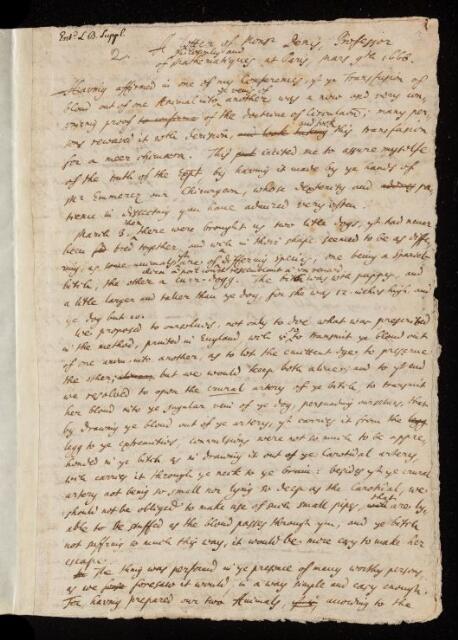 Entd. L. B. Suppl.
2. A Letter of Monsr Denis, Professor
of philosophy and
of Mathematiques at Paris, Mars. 9th 1668.
Having affirmed in one of my Conferences, yt ye Transfusion of
blood out of one Animal into ye veins of another was a new and very con-
vincing proof of the doctrine of Circulation; many per-
sons received it with derision, and took this transfusion
for a meer chimera. This excited me to assure myselfe
of the truth of the Expt by having it made by ye hands of
Mr Emmerez our Chirurgeon, whose dexterity and pa-
tience in dissecting you have admired very often.
March 3. there were brought us two little dogs, yt had never
been fed together, and wch in their shape seemed to be as diffe-
ring, as some animals are of differing species, one being a spaniel-
bitch, the other a curr-dogg. The bitch was with puppy, and
a little larger and taller than ye dog, for she was 12 inches high, and
ye dog but 10.
We proposed to ourselves, not only to doe what was prescribed
in the method, printed in England wch is to transmit ye blood out
of one anim. into another, as to let the emittent dye to preserve
the other; but we would keep both alive; and to yt end
we resolved to open the crural artery of ye bitch, to transmit
her blood into ye Jugular vein of ye dog, persuading ourselves, that
by drawing ye blood out of ye artery, yt carries it from the
legg to ye extremities, convulsions were not so much to be appre-
hended in ye bitch as in drawing it out of ye Carotidal artery,
wch carries it through ye neck to ye braine: besides yt ye crural
artery not being so small nor lying so deep as the Carotidal, we
should not be obliged to make use of such small pipes, that are ly-
able to be stuffed as the blood passes through ym, and ye bitch
not suffering so much this way, it would be more easy to make her
escape.
The thing was performd in ye presence of many worthy persons,
as we foresaw it would, in a way simple and easy enough.
For having prepared our two Animals according to the